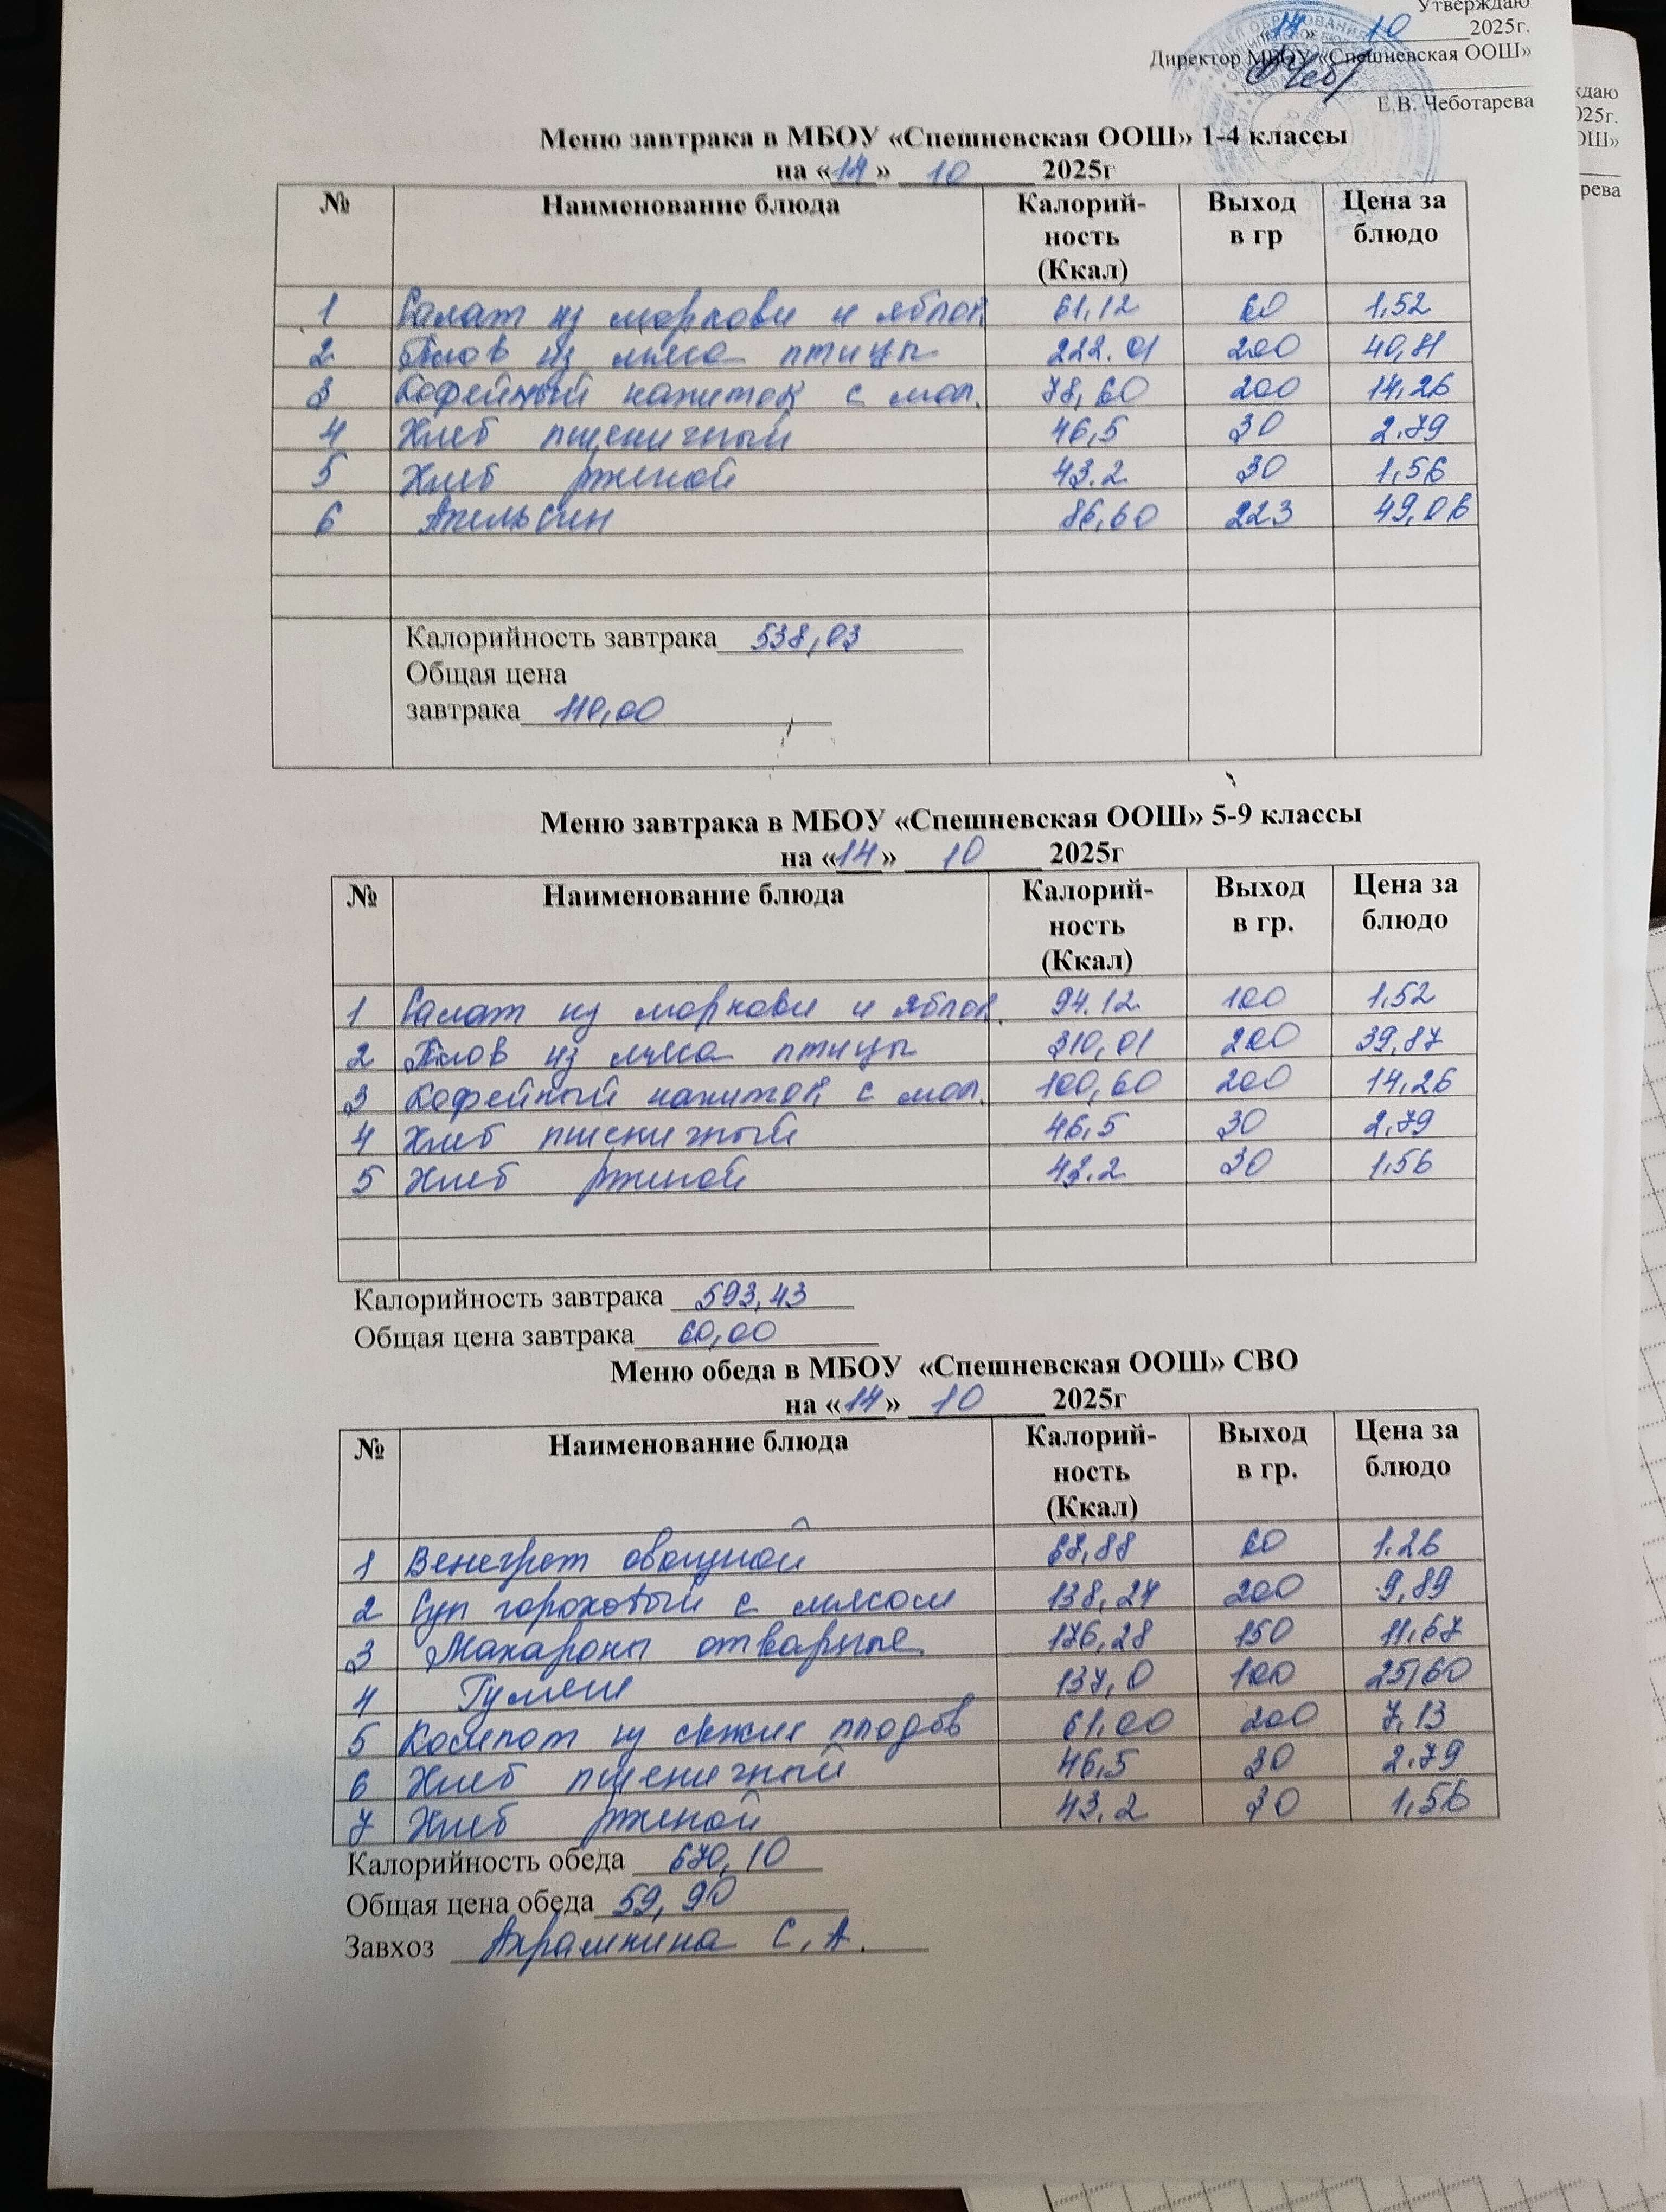 Утверждаю
«14» 10 2025г.
Директор МБОУ «Спешневская ООШ»
Е.В. Чеботарева
ждаю
025г.
ОШ»
рева
Меню завтрака в МБОУ «Спешневская ООШ» 1-4 классы
на «14» 10 2025г
№ Наименование блюда Калорий-ность (Ккал) Выход в гр Цена за блюдо
1 Салат из моркови и яблок 61,12 60 1,52
2 Плов из мяса птицы 222.01 200 40,81
3 Кофейный напиток с мол. 78,60 200 14,26
4 Хлеб пшеничный 46,5 30 2.79
5 Хлеб ржаной 43.2 30 1,56
6 Апельсин 86,60 223 49,06
Калорийность завтрака 538,03
Общая цена
завтрака 110,00
Меню завтрака в МБОУ «Спешневская ООШ» 5-9 классы
на «14» 10 2025г
№ Наименование блюда Калорий-ность (Ккал) Выход в гр. Цена за блюдо
1 Салат из моркови и яблок. 94.12 100 1,52
2 Плов из мяса птицы 310,01 200 39,87
3 Кофейный напиток с мол. 100,60 200 14,26
4 Хлеб пшеничный 46,5 30 2,79
5 Хлеб ржаной 43.2 30 1,56
Калорийность завтрака 593,43
Общая цена завтрака 60,00
Меню обеда в МБОУ «Спешневская ООШ» СВО
на «14» 10 2025г
№ Наименование блюда Калорий-ность (Ккал) Выход в гр. Цена за блюдо
1 Венегрет овощной 67,88 60 1.26
2 Суп гороховый с мясом 138,24 200 9,89
3 Макароны отварные 176,28 150 11,67
4 Гуляш 137,0 100 25,60
5 Компот из свежих плодов 61,00 200 7,13
6 Хлеб пшеничный 46,5 30 2.79
7 Хлеб ржаной 43,2 30 1,56
Калорийность обеда 670,10
Общая цена обеда 59,90
Завхоз Ахрамкина С.А.